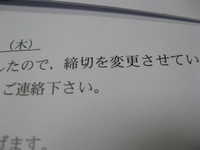 （木）
したので，締切を変更させてい
ご連絡下さい。
げます。